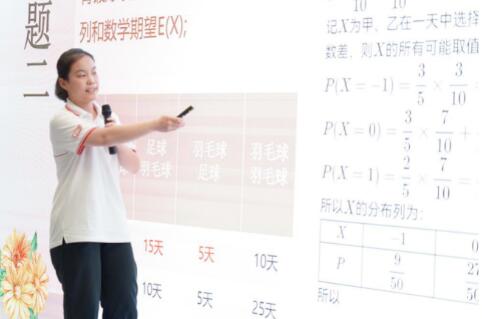 题
二
列和数学期望E(X);
足球 羽毛球 羽毛球
羽毛球 足球 羽毛球
15天 5天 10天
10天 5天 25天
10 10
记X为甲、乙在一天中选择
数差，则X的所有可能取值
P(X = −1) = 3/5 × 3/10
P(X = 0) = 3/5 × 7/10 +
P(X = 1) = 2/5 × 7/10 =
所以X的分布列为:
X −1 0
P 9/50 27/50
所以